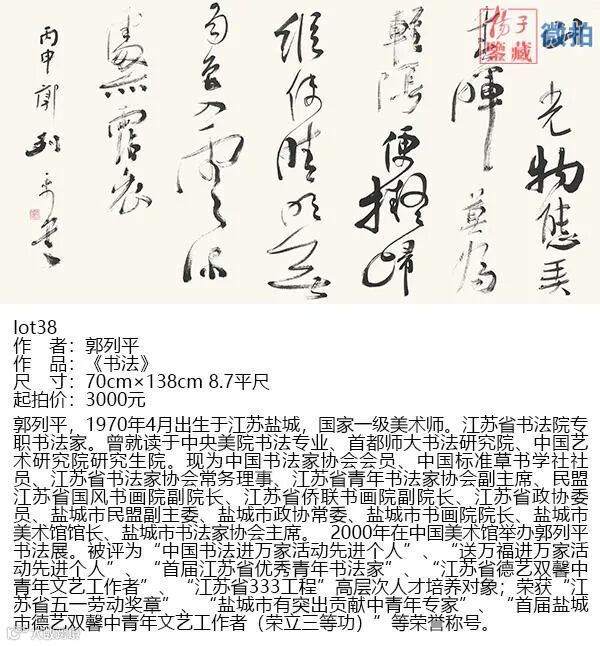 山光物態弄
春暉莫為
輕陰便擬歸
縱使晴明無
雨色入雲深
處亦霑衣
丙申郭列平書
揚子
鑒藏
微拍
lot38
作 者：郭列平
作 品：《书法》
尺 寸：70cm×138cm 8.7平尺
起拍价：3000元
郭列平，1970年4月出生于江苏盐城，国家一级美术师。江苏省书法院专
职书法家。曾就读于中央美院书法专业、首都师大书法研究院、中国艺
术研究院研究生院。现为中国书法家协会会员、中国标准草书学社社
员、江苏省书法家协会常务理事、江苏省青年书法家协会副主席、民盟
江苏省国风书画院副院长、江苏省侨联书画院副院长、江苏省政协委
员、盐城市民盟副主委、盐城市政协常委、盐城市书画院院长、盐城市
美术馆馆长、盐城市书法家协会主席。 2000年在中国美术馆举办郭列平
书法展。被评为“中国书法进万家活动先进个人”、“送万福进万家活
动先进个人”、“首届江苏省优秀青年书法家”、“江苏省德艺双馨中
青年文艺工作者”、“江苏省333工程”高层次人才培养对象；荣获“江
苏省五一劳动奖章”、“盐城市有突出贡献中青年专家”、“首届盐城
市德艺双馨中青年文艺工作者（荣立三等功）”等荣誉称号。